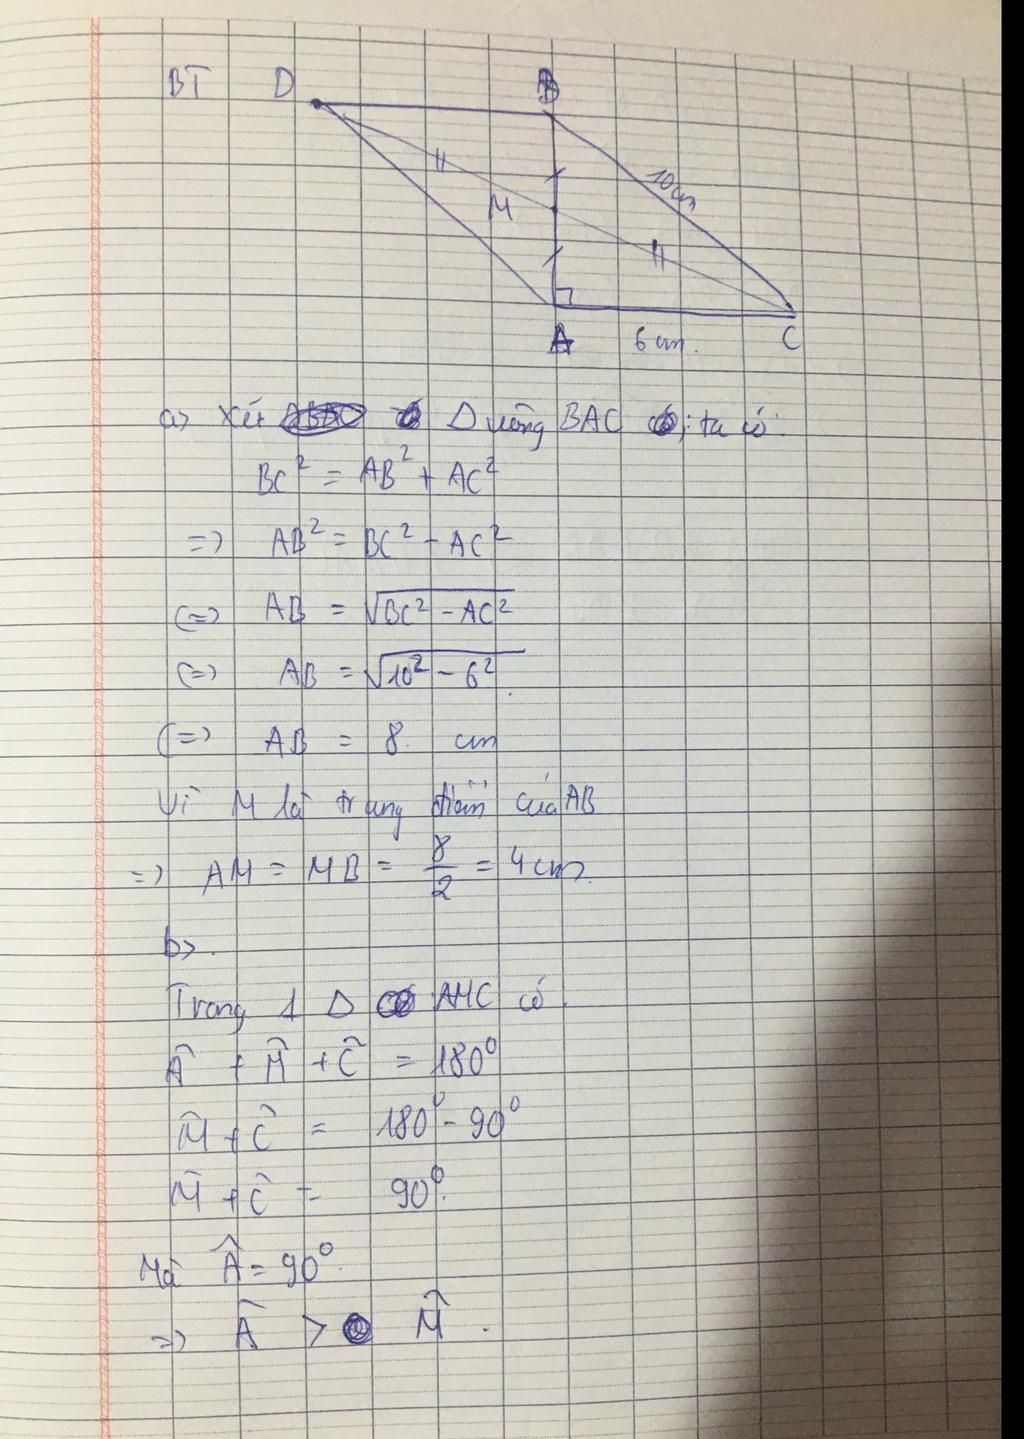 BT D B
10cm
M
A 6 cm. C
a) Xét Δ vuông BAC, ta có:
BC² = AB² + AC²
=> AB² = BC² - AC²
(=> AB = √BC² - AC²
(=> AB = √10² - 6²
(=> AB = 8 cm
Vì M là trung điểm của AB
=> AM = MB = 8/2 = 4 cm.
b>.
Trong 1 Δ AMC có
Â + M̂ + Ĉ = 180°
M̂ + Ĉ = 180° - 90°
M̂ + Ĉ = 90°.
Mà Â = 90°.
=> Â > M̂.